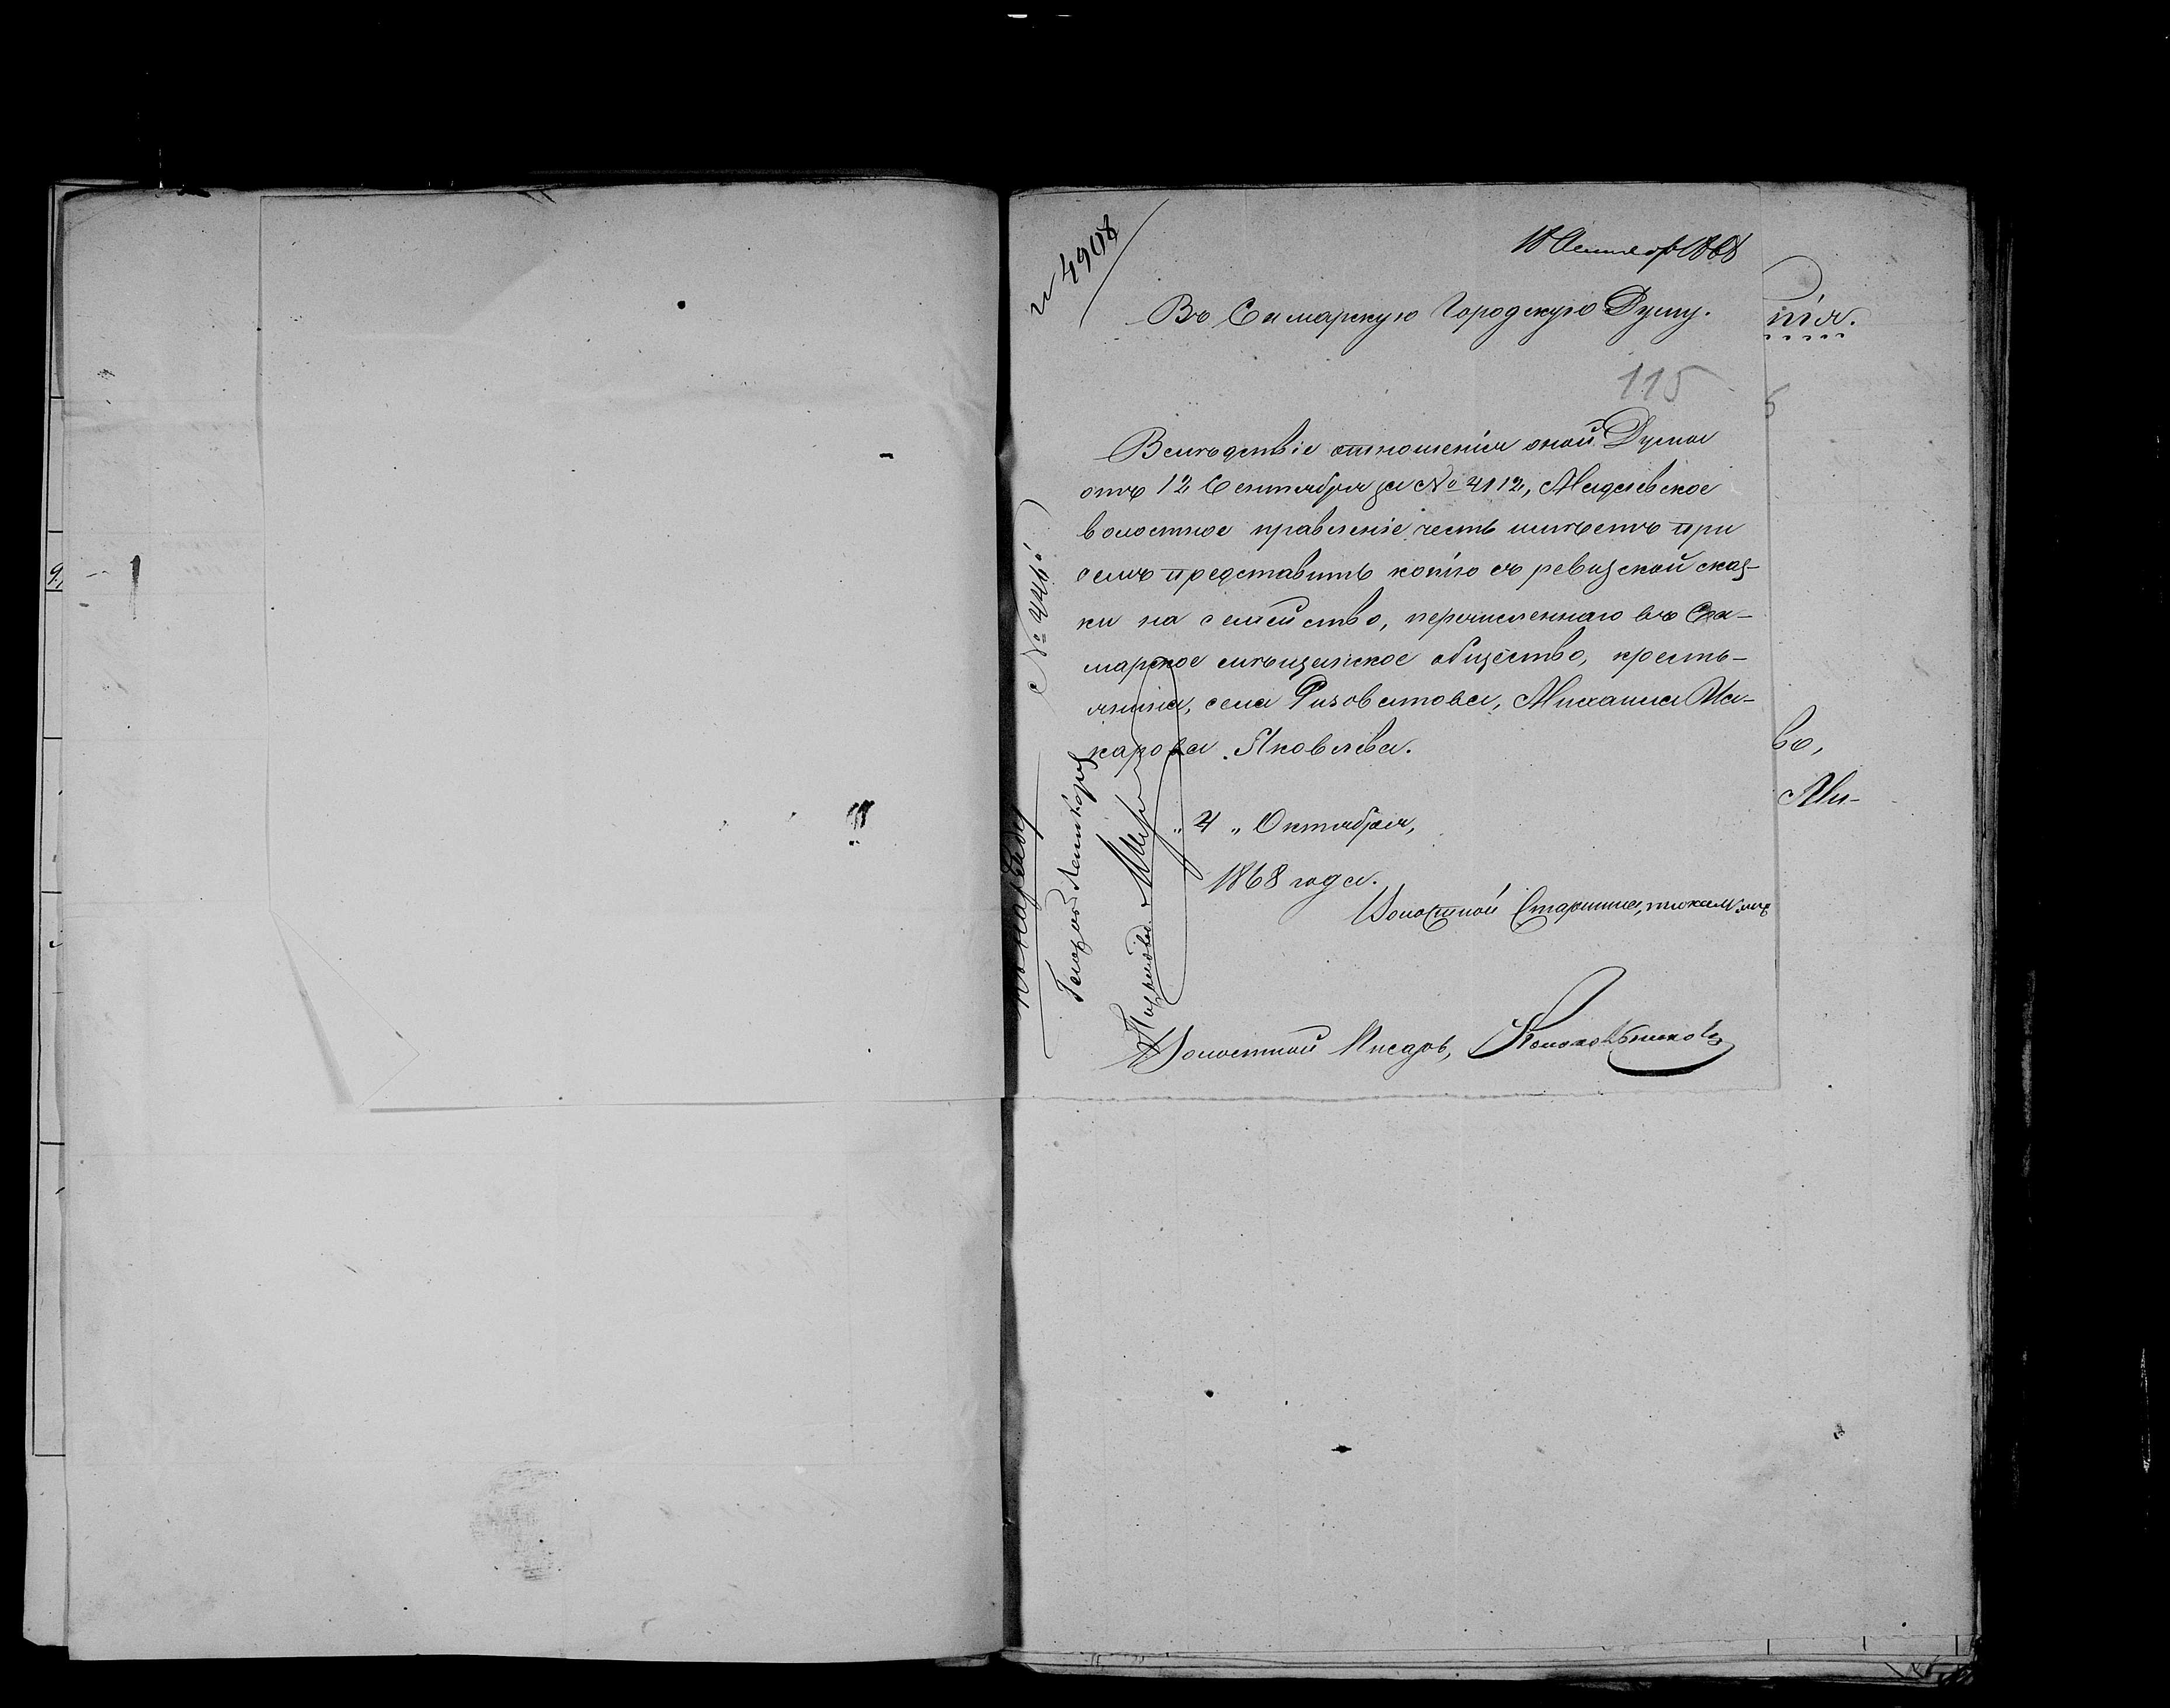 № 4908
18 Октября 1868
Въ Самарскую Городскую Думу.
нія.
115
Вслѣдствіе отношенія оной Думы
отъ 12 Сентября за № 4112,
волостное правленіе честь имѣетъ при
семъ представить копію съ ревизской сказ-
ки на семейство, перечисленнаго въ Са-
марское мѣщанское общество, кресть-
янина, села Ризоватова, Михаила Ма-
карова Яковлева.
во,
Ми-
„4„ Октября,
1868 года.
Волостной Старшина,
Волостной Писарь,
№ 446.